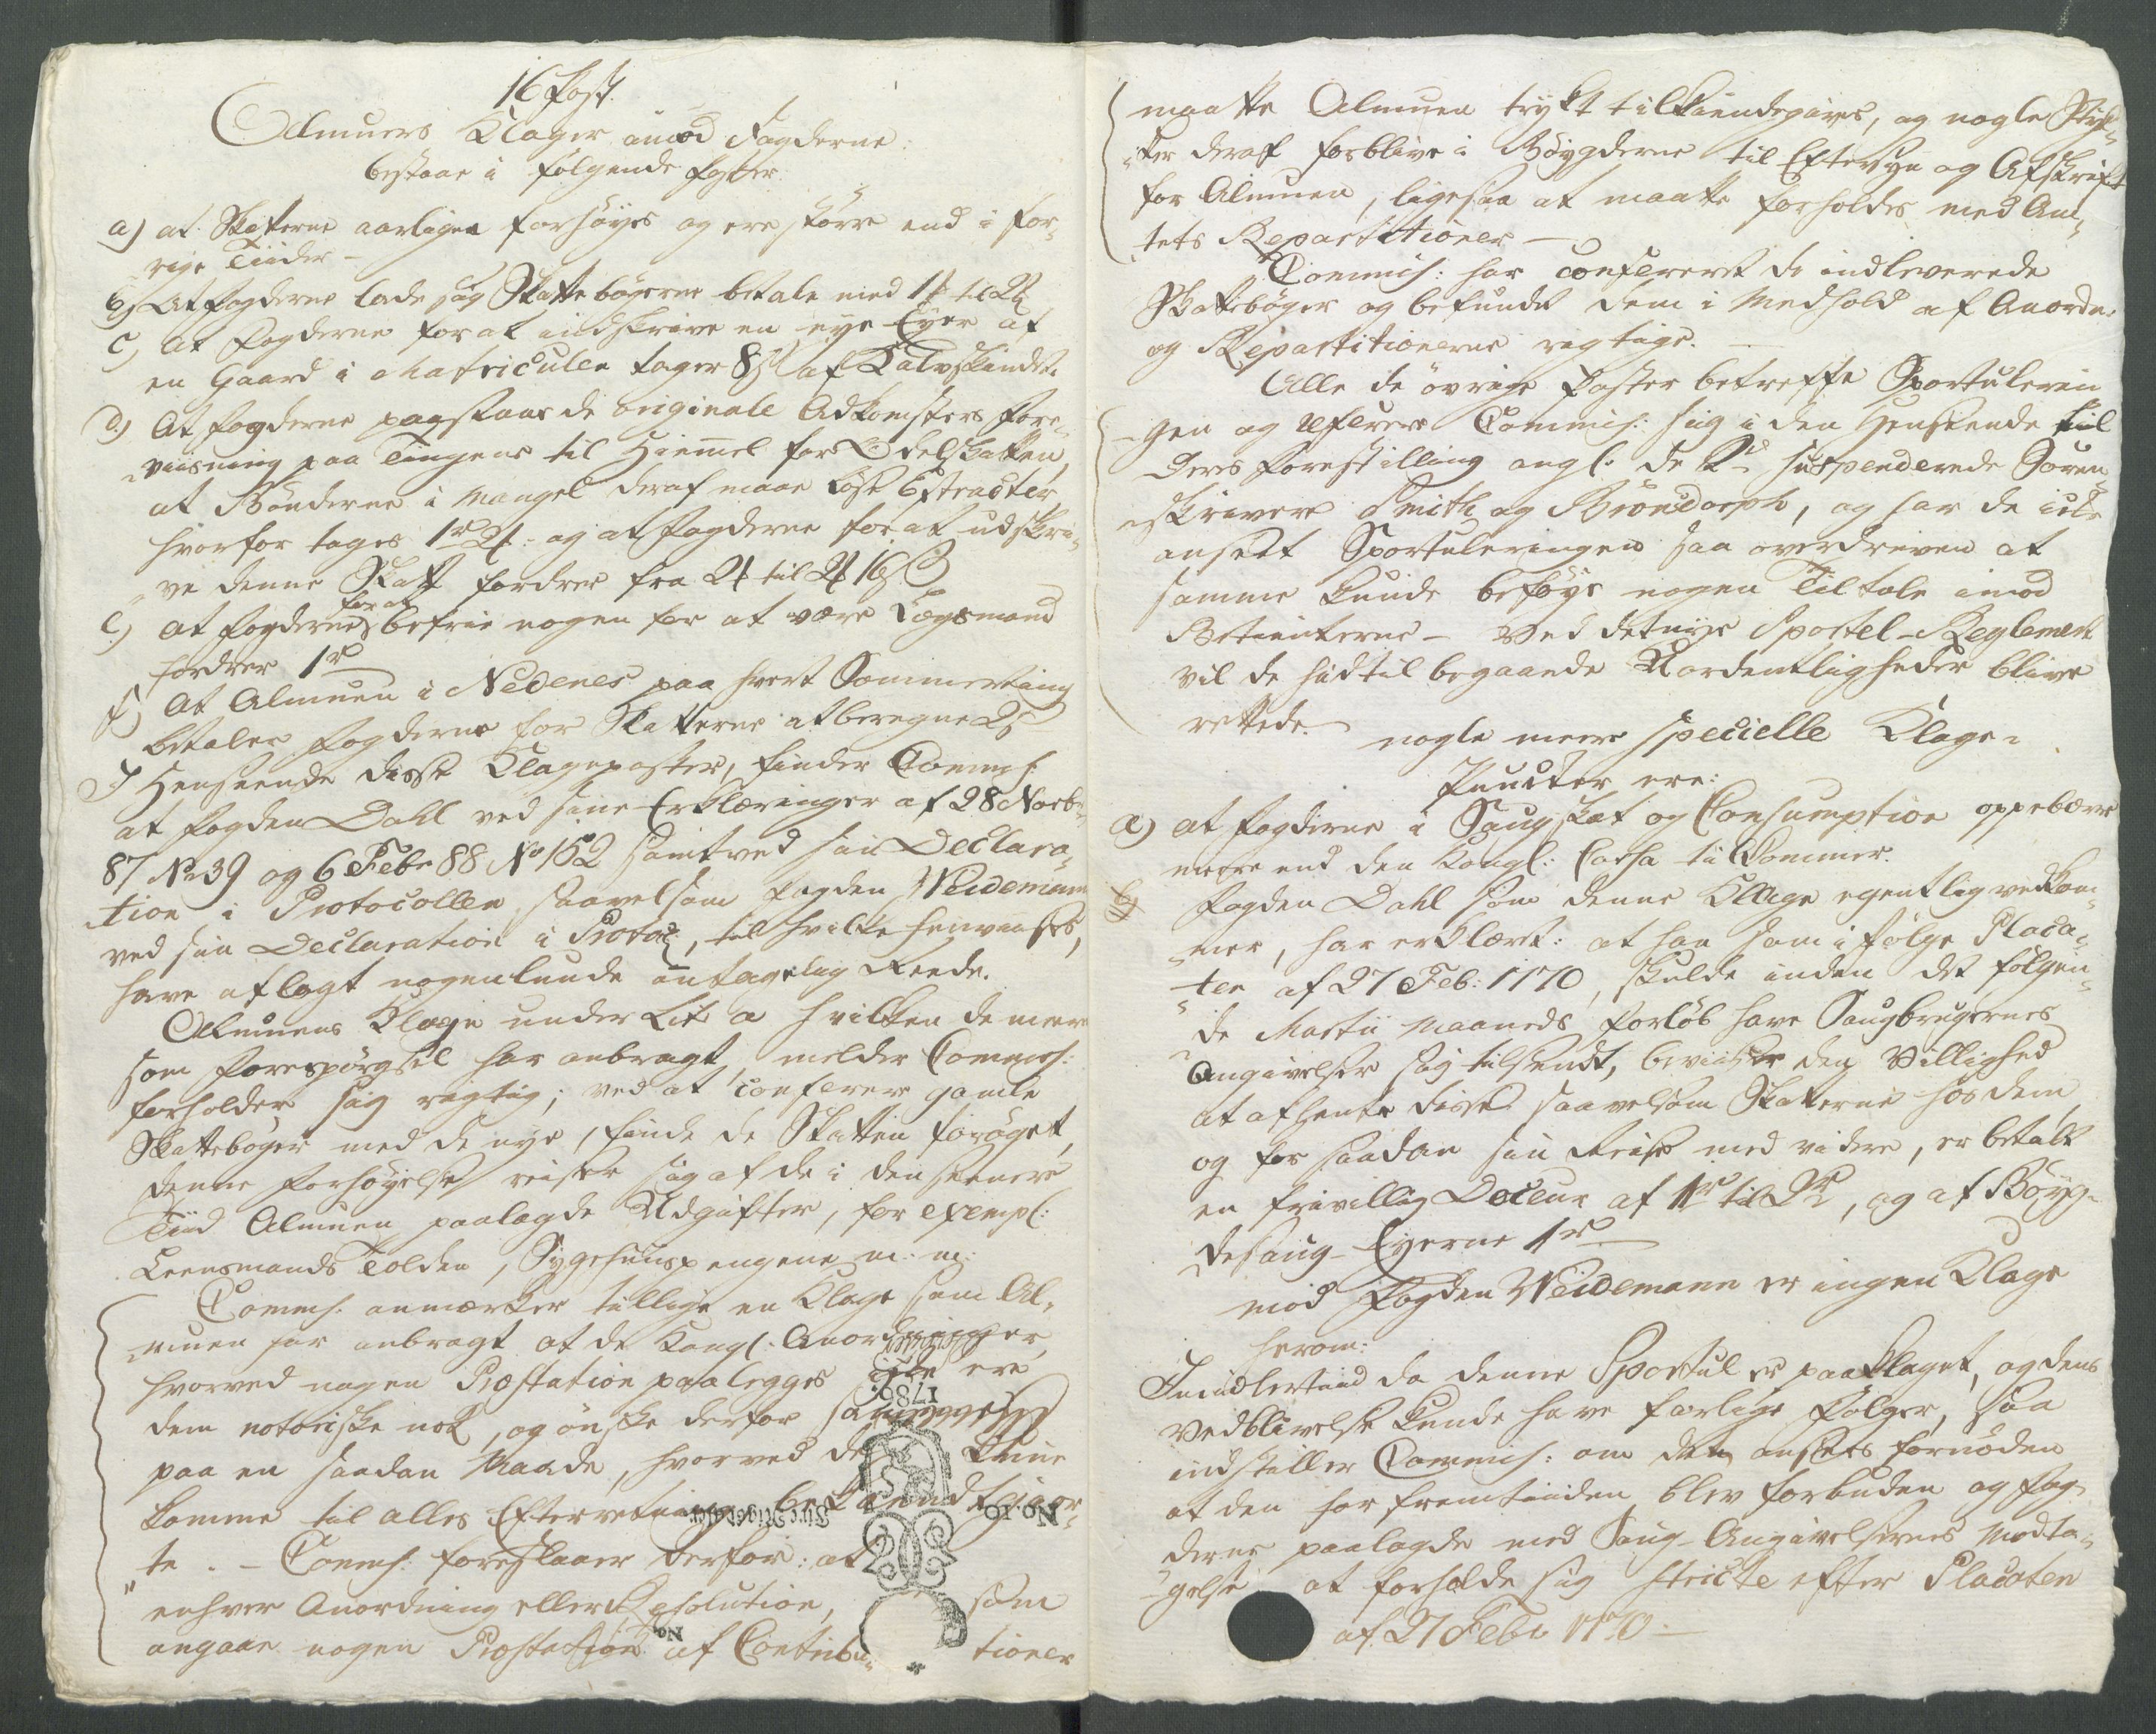 16 Post.
Almuens Klager imod Fogderne
bestaar i følgende Poster.
a) at Skatterne aarligen forhøyes og ere større end i for¬
rige Tiider –
b) At Fogderne lade sig Skattebøgerne betale med
c) At Fogderne for at indskrive en nye Eyer af
en Gaard i Matriculen tager 8 s af Kalvskindet.
d.) At Fogderne paastaar de originale Adkomsters Fore¬
viisning paa Tingene til Hiemmel for Odelskatten,
at Bønderne i Mangel deraf maae løse Extracter
hvorfor tages 1 rd 2 og at Fogderne for at udskri¬
ve denne Skatt fordrer fra 2 til 2 16 s
e.) At Fogderne for at befrie nogen for at være Lægsmand
fordrer 1 rd
f) At Almuen i Nedenes paa hvert Sommerting
betaler Fogderne for Skatterne at beregne 2 s
I Henseende disse Klageposter, finder Commis:
at Fogden Dahl ved sine Erklæringer af 28 Novbr
87 No 39 og 6 Febr 88 No 152 samt ved sin Declara¬
tion i Protocollen saavelsom Fogden Weidemann
ved sin Declaration i Protoc:, til hvilke henviises,
have aflagt nogenlunde antagelig Reede.
Almuens Klage under Lit a hvilken de meere
som Forespørgsel har anbragt, melder Commis:
forholder sig rigtig; ved at conferere gamle
Skattebøger med de nye, finde de Skatten forøget,
denne Forhøyelse reiser sig af de i den seenere
Tiid Almuen paalagde Udgifter, for exempl:
Leensmands Tolden, Sygehuuspengene m: m:
Commis: anmærker tillige en Klage som Al¬
muen har anbragt at de Kongl: Anordninger,
hvorved nogen Præstation paalegges icke ere
dem notoriske nok, og ønske derfor
paa en saadan Maade, hvorved de kunne
komme til alles Efterretning bekiendtgior¬
te. – Commis: foreslaaer derfor: at
enhver Anordning eller Resolution, som
angaar nogen Præstation af Contribu¬ tioner
1786.
No. 10
Fire Rigsdaler
No.
maatte Almuen trykt tilkiendegives, og nogle Styk¬
ker deraf forblive i Bøygderne til Eftersyn og Afskrift
for Almuen, ligesaa at maatte forholdes med Am¬
tets Repartitioner –
Commis: har confereret de indleverede
Skattebøger og befundet dem i Medhold af Anordn:
og Repartitionerne rigtige. –
Alle de øvrige Poster betreffe Sportulerin
gen og refererer Commis: sig i den Henseende til
Deres Forestilling angl: de 2de suspenderede Soren¬
skrivere Smith og Brøndorph, og har de icke
anseet Sportuleringen saa overdreven at
samme kunde beføye nogen Tiltale imod
Betienterne – Ved det nye Sportel-Reglement
vil de hidtil begaaede Uordentligheder blive
rettede. nogle meere specielle Klage¬
Puncter ere:
a) At Fogderne i Saugskat og Consumption oppebære
meere end den Kongl: Cassa tilkommer.
b) Fogden Dahl som denne Klage egentlig vedkom¬
mer, har erklæret: at han som i følge Placa¬
ten af 27 Feb: 1770, skulde inden det følgen¬
de Martii Maaneds forløb have Saugbrugernes
Angivelser sig tilsendt, beviiser den Villighed
at afhente disse saavelsom Skatterne hos dem,
og for saadan sin Reise med videre, er betalt
en frivillig Doceur af 1 rd til 2 rd, og af Bøyg¬
desaug-Eyerne 1 rd
mod Fogden Weidemann er ingen Klage
herom:
Imidlertiid da denne Sportul er paaklaget, og dens
vedblivelse kunde have farlige Følger, saa
indstiller Commis: om det ansees fornøden
at den for fremtiiden blev forbuden og Fog¬
derne paalagde med Saug-Angivelsernes Modta¬
gelse at forholde sig stricte efter Placaten
af 27 Febr 1770. –